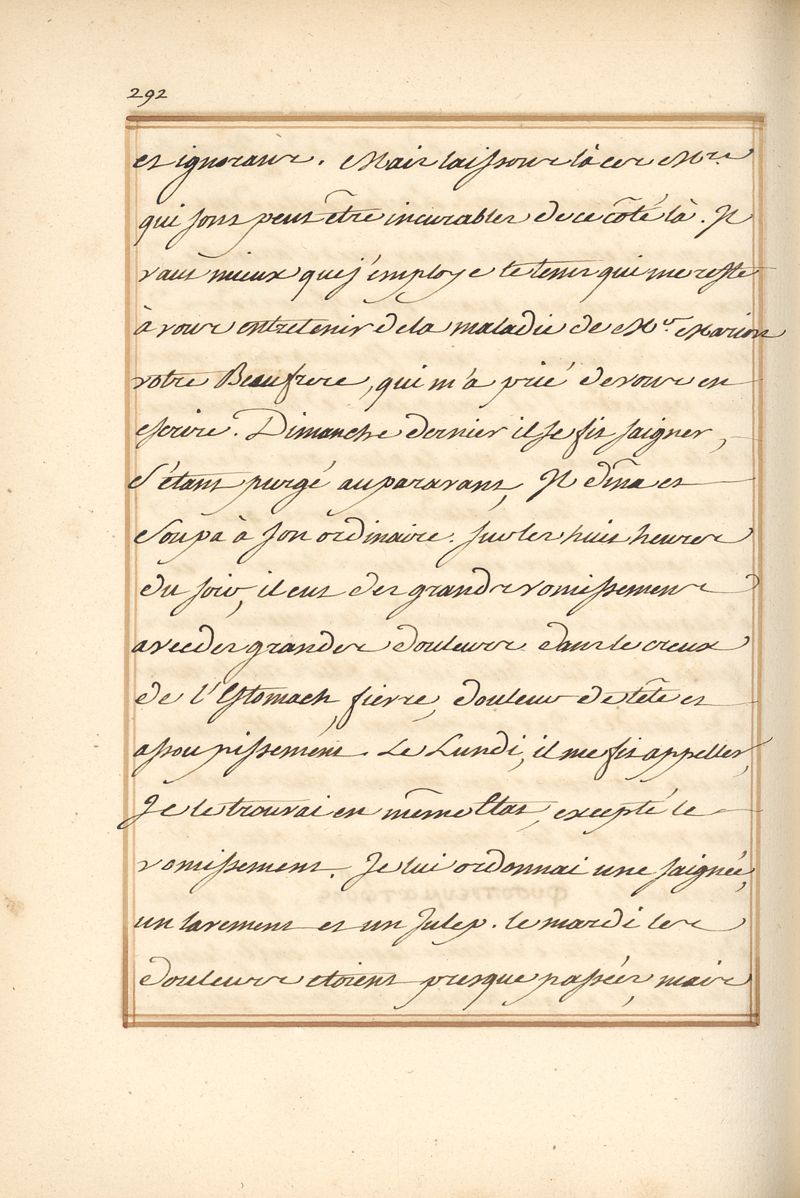 292
et ignorans. Mais laissons là ces Mrs
qui sont peut être incurables de ce côté là. Il
vaut mieux que j'employe le tems qui me reste
à vous entretenir de la maladie de Mr. Marion
votre Beaufrere, qui m'a prié de vous en
escrire. Dimanche dernier il se fit saigner,
s'étant purgé auparavant, Il dîna et
soupa à son ordinaire. sur les huit heures
du soir, il eut des grands vomissemens
avec des grandes douleurs dans le creux
de l'Estomach, fievre, douleur de tête et
assoupissement. Le Lundi, il me fit appeller,
Je le trouvai en même Etat, excepté le
vomissement. Je lui ordonnai une saignée,
un lavement et un Julep. le mardi les
douleurs etoient presque passées, mais